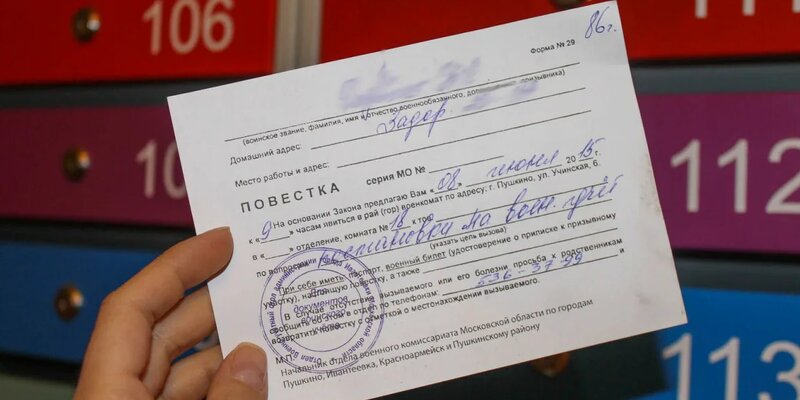 106
113
112
112
113
86г.
Форма № 29
(воинское звание, фамилия, имя и отчество военнообязанного, призывника)
Домашний адрес: Задор.
Место работы и адрес:
ПОВЕСТКА серия МО №
На основании Закона предлагаю Вам «08» июня 2015 г.
к «9» часам явиться в рай (гор) военкомат по адресу: г. Пушкино, ул. Учинская, 6.
в « » отделение, комната № 18 к тов.
по вопросу постановки на воин. учёт
(указать цель вызова)
При себе иметь: паспорт, военный билет (удостоверение о приписке к призывному
участку), настоящую повестку, а также
В случае отсутствия вызываемого или его болезни просьба к родственникам
сообщить об этом в отдел по телефонам: 536-37-99
возвратить повестку с отметкой о местонахождении вызываемого.
М.П.
Начальник отдела военного комиссариата Московской области по городам
Пушкино, Ивантеевка, Красноармейск и Пушкинскому району
Для
документов
воинского
учета